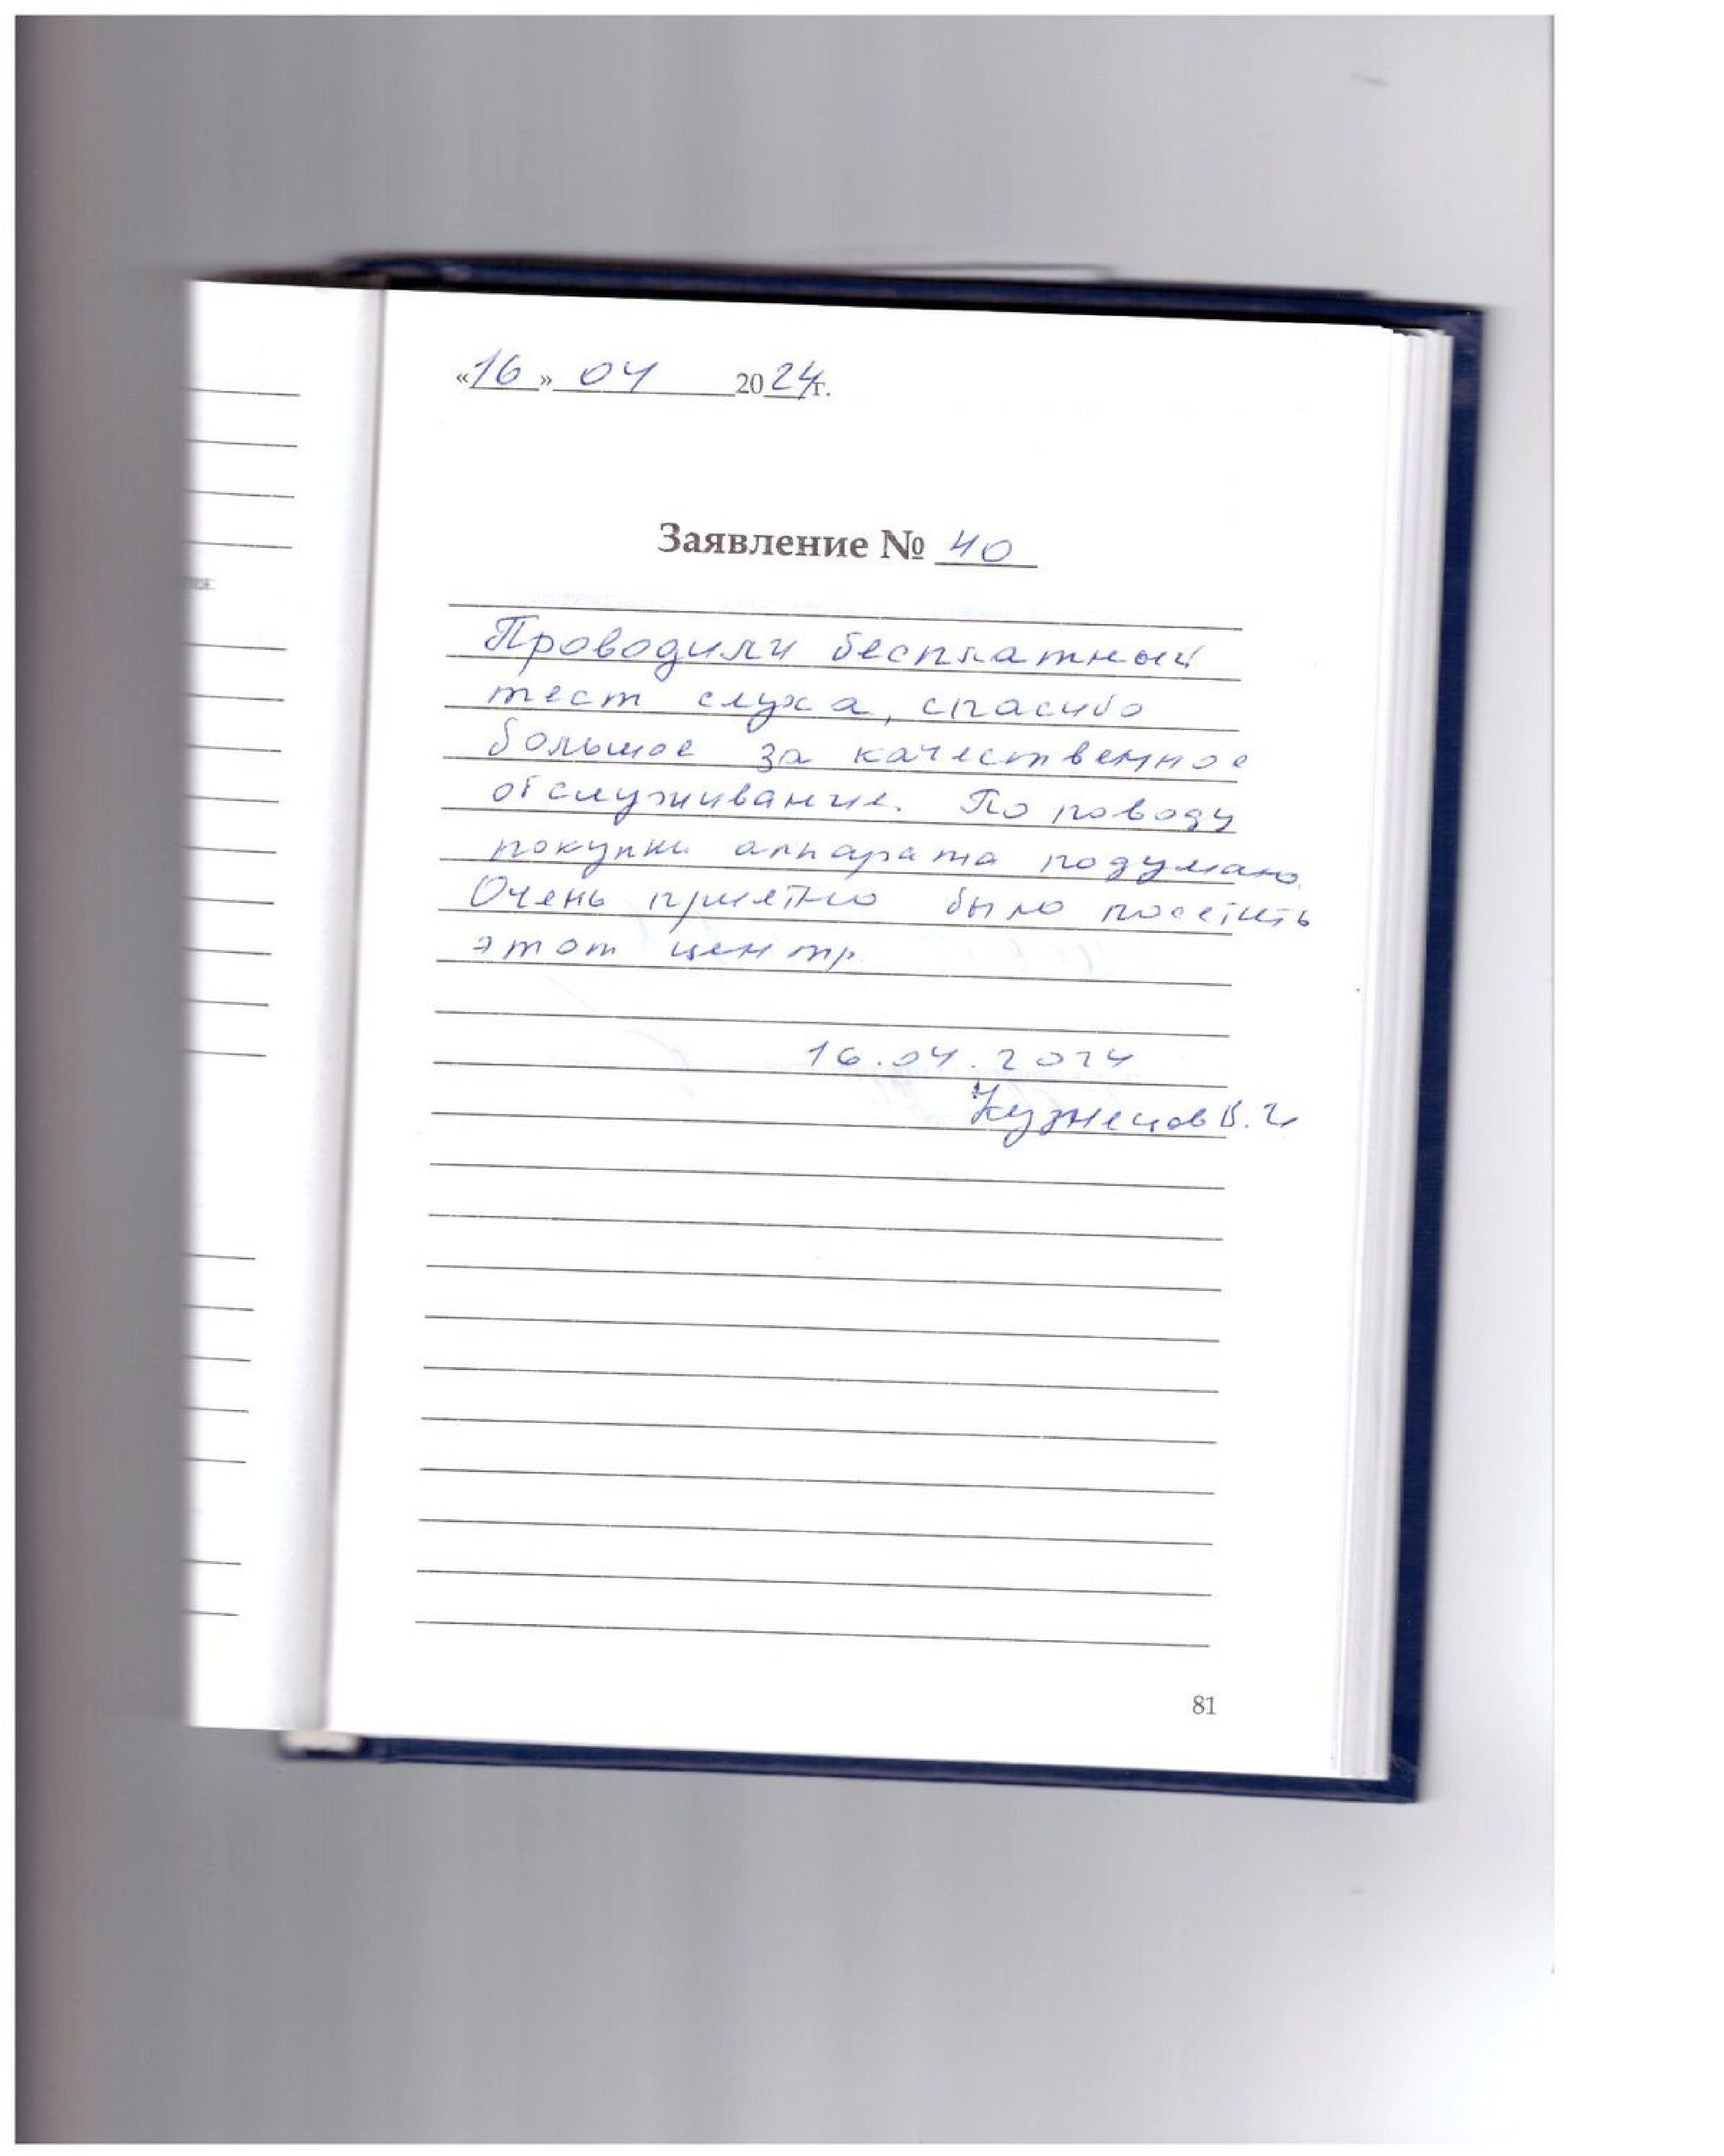 «16» 04 2024г.
Заявление № 40
Проводили бесплатный
тест слуха, спасибо
большое за качественное
обслуживание. По поводу
покупки аппарата подумаю.
Очень приятно было посетить
этот центр.
16.04.2024
Кузнецов В. И
81